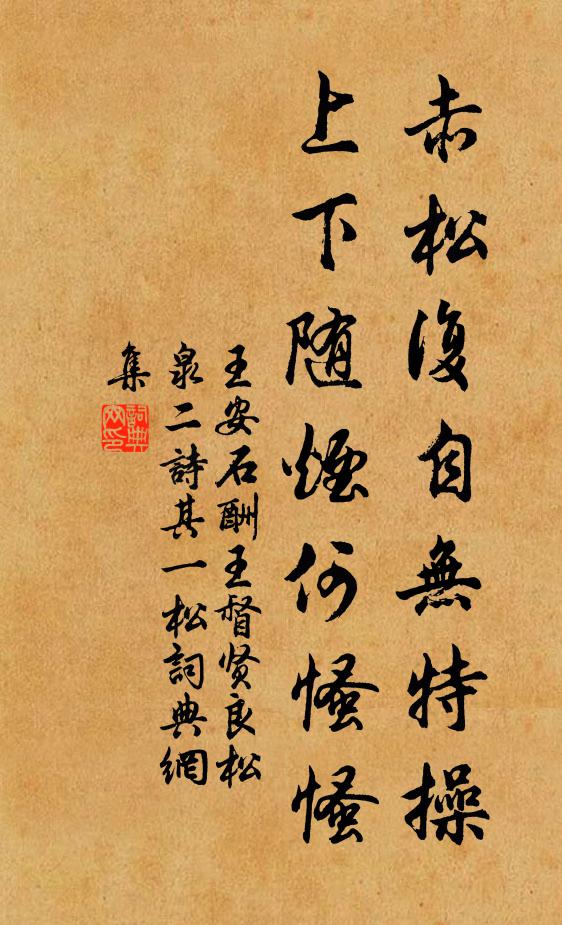 赤松復自無特操
上下随煙何慅慅
王安石酬王督贤良松
泉二詩其一松詞典網
集
詞典